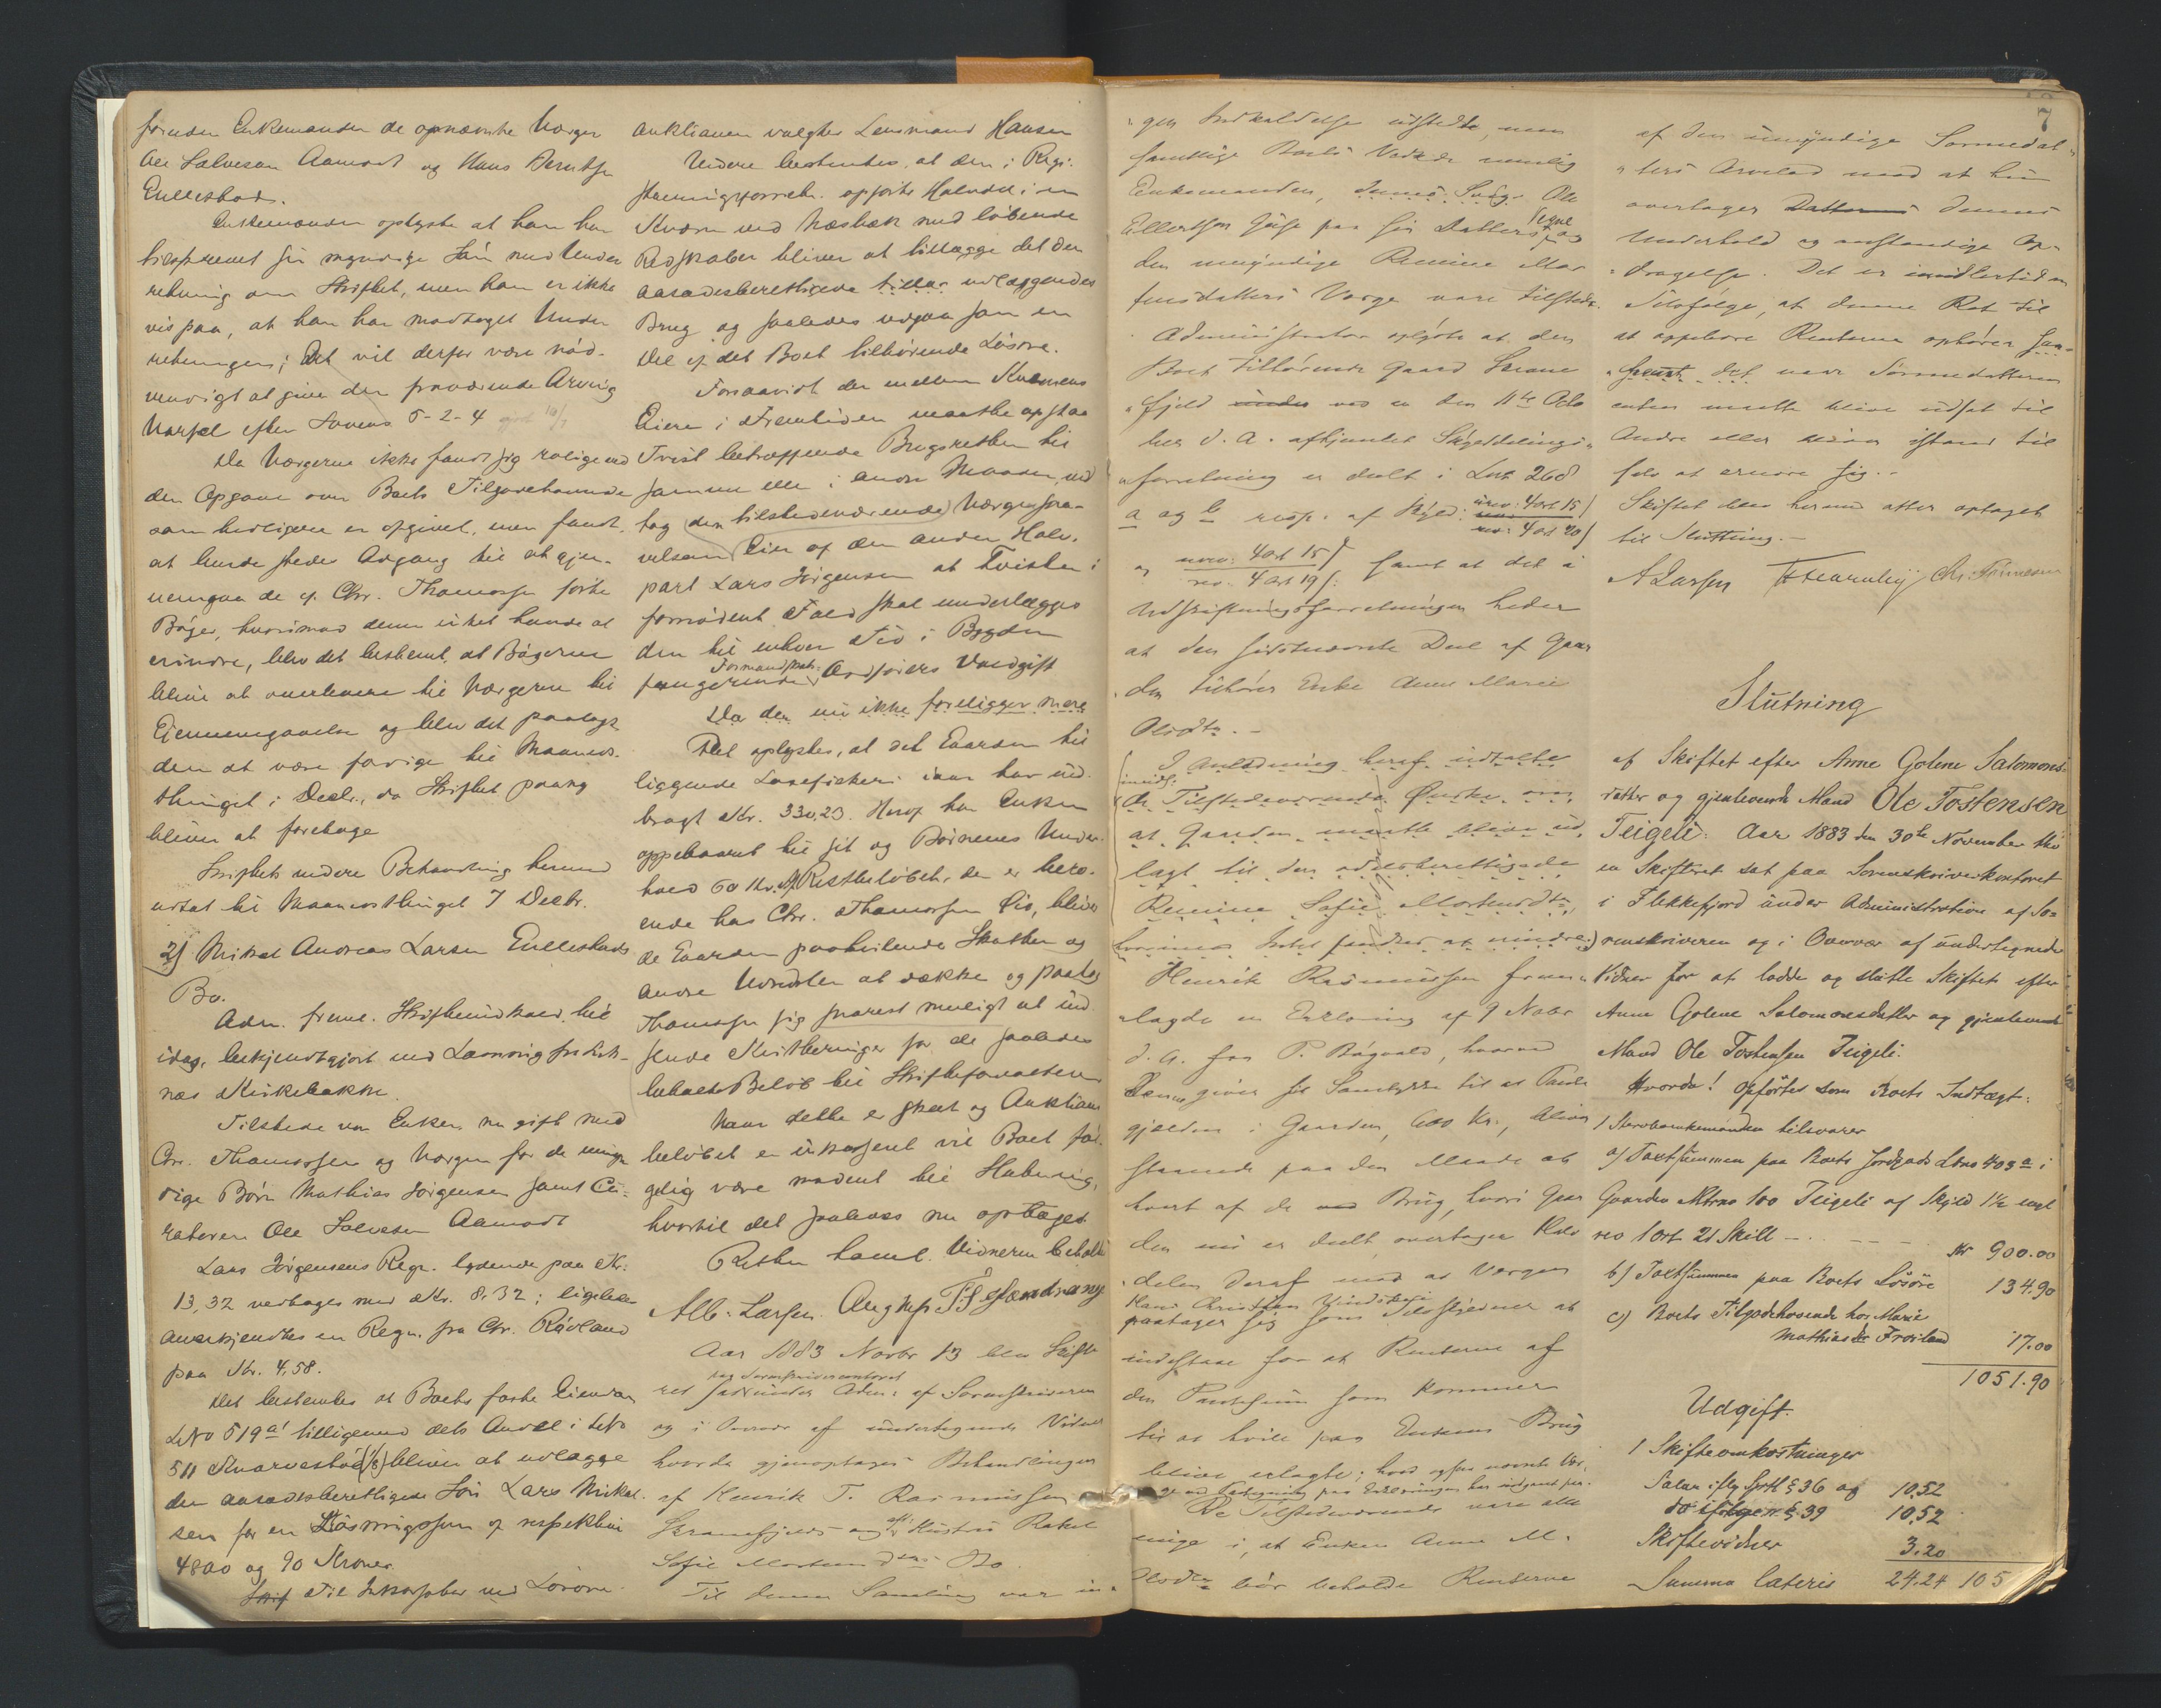 foruden Enkemanden de opnævnte Værger
Ole Salvesen Aamodt og Hans Berntsen
Eullestad.
Enkemanden oplyste at han har
tilskrevet sin myndige Søn med Under
retning om Skiftet, men han er ikke
vis paa, at han har modtaget Under
retningen; Det vil derfor være nød-
vendigt at give den fraværende Arving
Varsel efter Lovens 5-2-4
Da Værgerne ikke fandt sig rolige ved
den Opgave over Boets Tilgodehavende
som tidligere er opgivet, men fandt
at burde stedes Adgang til at gjen-
nemgaa de af Chr. Thomassen førte
Bøger, hvorimod denne intet havde at
erindre, blev det bestemt, at Bøgerne
bliver at overlevere til Værgerne til
Gjennemgaaelse og blev det paalagt
dem at være færdige til Maaneds-
thinget i Decbr., da Skiftet paany
bliver at foretage
Skiftets videre Behandling herved
udsat til Maanedsthinget 7 Decbr.
2) Mikal Andreas Larsen Eullestads
Bo.
Adm. freml. Skifteindkald. til
idag, bekjendtgjort ved Læsning fra List-
næs Kirkebakke.
Tilstede var Enken, nu gift med
Chr. Thomassen og Værgen for de umyn
dige Børn Mathias Jørgensen samt Cu-
ratoren Ole Salvesen Aamodt
Lars Jørgensens Regn. lydende paa Kr.
13,32 vedtages med Kr. 8.32; ligeledes
anerkjendtes en Regn. fra Chr. Røvland
paa Kr. 4,58.
Det bestemtes at Boets faste Eiendom
LNo 519 a1 tilligemed dets Andel i LNo
511 Knarvestøl (1/8) bliver at udlægge
den aasædesberettigede Søn Lars Mikal-
sen for en Løsningssum af respektive
4800 og 90 Kroner.
Skif Til Inkassator ved Løsøre
auktionen valgtes Lensmand Hansen
Videre bestemtes, at den i Regi-
streringsforretn. opførte Halvdel i en
Kværn ved Næsbæk med løbende
Redskaber bliver at tillægge det den
aasædesberettigede tillar udlæggendes
Brug og saaledes udgaa som en
Del af det Boet tilhørende Løsøre.
Forsaavidt der mellem Kværnens
Eiere i Fremtiden maatte opstaa
Tvist betræffende Brugsretten til
samme eller i anden Maade, ved
tog den tilstedeværende Værge saa-
velsom Eier af den anden Halv-
part Lars Jørgensen at Tvisten i
fornødent Fald skal underlægges
den til enhver Tid i Bygden
Formandsk:
fungerende Ordførers Voldgift
Da der nu ikke foreligger mere
Det oplystes, at det Gaarden til
liggende Laxefiskeri iaar har ind
bragt Kr. 330,23. Heraf har Enken
oppebaaret til sit og Børnenes Under-
hold 60 Kr. Af Restbeløbet, der er bero-
ende hos Chr. Thomassen Eie, bliver
de Gaarden paahvilende Skatter og
andre Udredsler at dække og paatog
Thomassen sig snarest muligt at ind
sende Kvitteringer for de saaledes
betalte Beløb til Skifteforvalteren
Naar dette er skeet og Auktions
beløbet er inkasseret vil Boet føl-
gelig være modent til Slutning,
hvortil det saaledes nu optages
Retten hævet. Vidneren betalt
Alb. Larsen. Aug Nep
Aar 1883 Novbr 13 blev Skifte
paa Sorenskriverkontoret
ret sat under Adm. af Sorenskriveren
og i Overvær af undertegnede Vidner
hvorda gjenoptoges Behandlingen
af Henrik T. Rasmussen
Skranefjeld og afd. Hustru Rakel
Sofie Mortensdtrs Bo.
Til denne Samling var in-
gen Indkaldelse udstedt, men
samtlige Boets Vedk. nemlig
Enkemanden, Ole
Ellertsen Gaase paa sin Datters Vegne og
den umyndige Remine Mor
tensdatters Værge vare tilstede.
Administrator oplyste at den
Boet tilhørende Gaard Skrane
fjeld under ved en den 11te Octo
ber d. A. afhjemlet Skylddelings-
forretning er deelt i Lnr. 268
a og b resp. af Skyld: urev: 4 ort 15 /
rev: 4 ort 20 /
og urev: 4 ort 15 /
rev. 4 ort 19 /: samt at det i
Udskiftningsforretningen heder
at den sidstnævnte Deel af Gaar
den tilhører Enke Anne Marie
Olsdtr. -
I Anledning heraf udtalte
de Tilstedeværende Ønske om,
at Gaarden maatte blive ud
lagt til den odelsberettigede
Remine Sofie Mortensdtr,
hvorimod Intet fandtes at erindre.
Henrik Rasmussen frem-
lagde en Erklæring af 9 Novbr
d. A. fra P. Bøgvald, hvorved
Denne giver sit Samtykke til at Pante
gjælden i Gaarden, 600 Kr., bliver
staaende paa den Maade at
hvert af de Brug, hvori Gaar
den nu er deelt, overtager Halv
delen deraf med at Værgen
Hans Christian
paatager sig som Selvskyldner at
indestaae for at Renterne af
den Pantesum som kommer
til at hvile paa Enkens Brug
blive erlagte;
De Tilstedeværende vare alle
enige i, at Enken Anne M.
Olsdtr bør beholde Renterne
7
af den umyndige Sønnedat-
ters Arvelod mod at hun
overtager Datterens dennes
Underhold og anstændige Op-
dragelse. Det er imidlertid en
Selvfølge, at denne Ret til
at oppebære Renterne ophører saa-
snart det naar Sønnedatteren
enten maatte blive udsat til
Andre eller bliver istand til
selv at ernære sig. -
Skiftet blev herved atter optaget
til Slutning. -
A Larsen
Slutning
af Skiftet efter Anne Golene Salomons-
datter og gjenlevende Mand Ole Tostensen
Teigeli. Aar 1883 den 30te November blev
en Skifteret sat paa Sorenskriverkontoret
i Flekkefjord under Administration af So-
renskriveren og i Overvær af undertegnede
Vidner for at lodde og slutte Skiftet efter
Anne Golene Salomonsdatter og gjenlevende
Mand Ole Tostensen Teigeli.
Hvorda! Opførtes som Boets Indtægt:
1 Stervboenkemanden tilsvarer
a) Taxtsummen paa Boets Jordgods Lbno 403 a i
Gaarden Mtrno 100 Teigeli af Skyld 1 1/2 engl
rev 1 ort 21 Skill - . - - - Kr 900.00
b) Taxtsummen paa Boets Løsøre 134.90
c) Boets Tilgodehavende hos Marie
Mathiasdtr Frøiland 17.00
1051.90
Udgift.
1 Skifteomkostninger
Salær iflg Sptl § 36 og 10.52
do ifølge n. § 39 10.52
Skiftevidner 3.20
Summa lateris 24.24 105